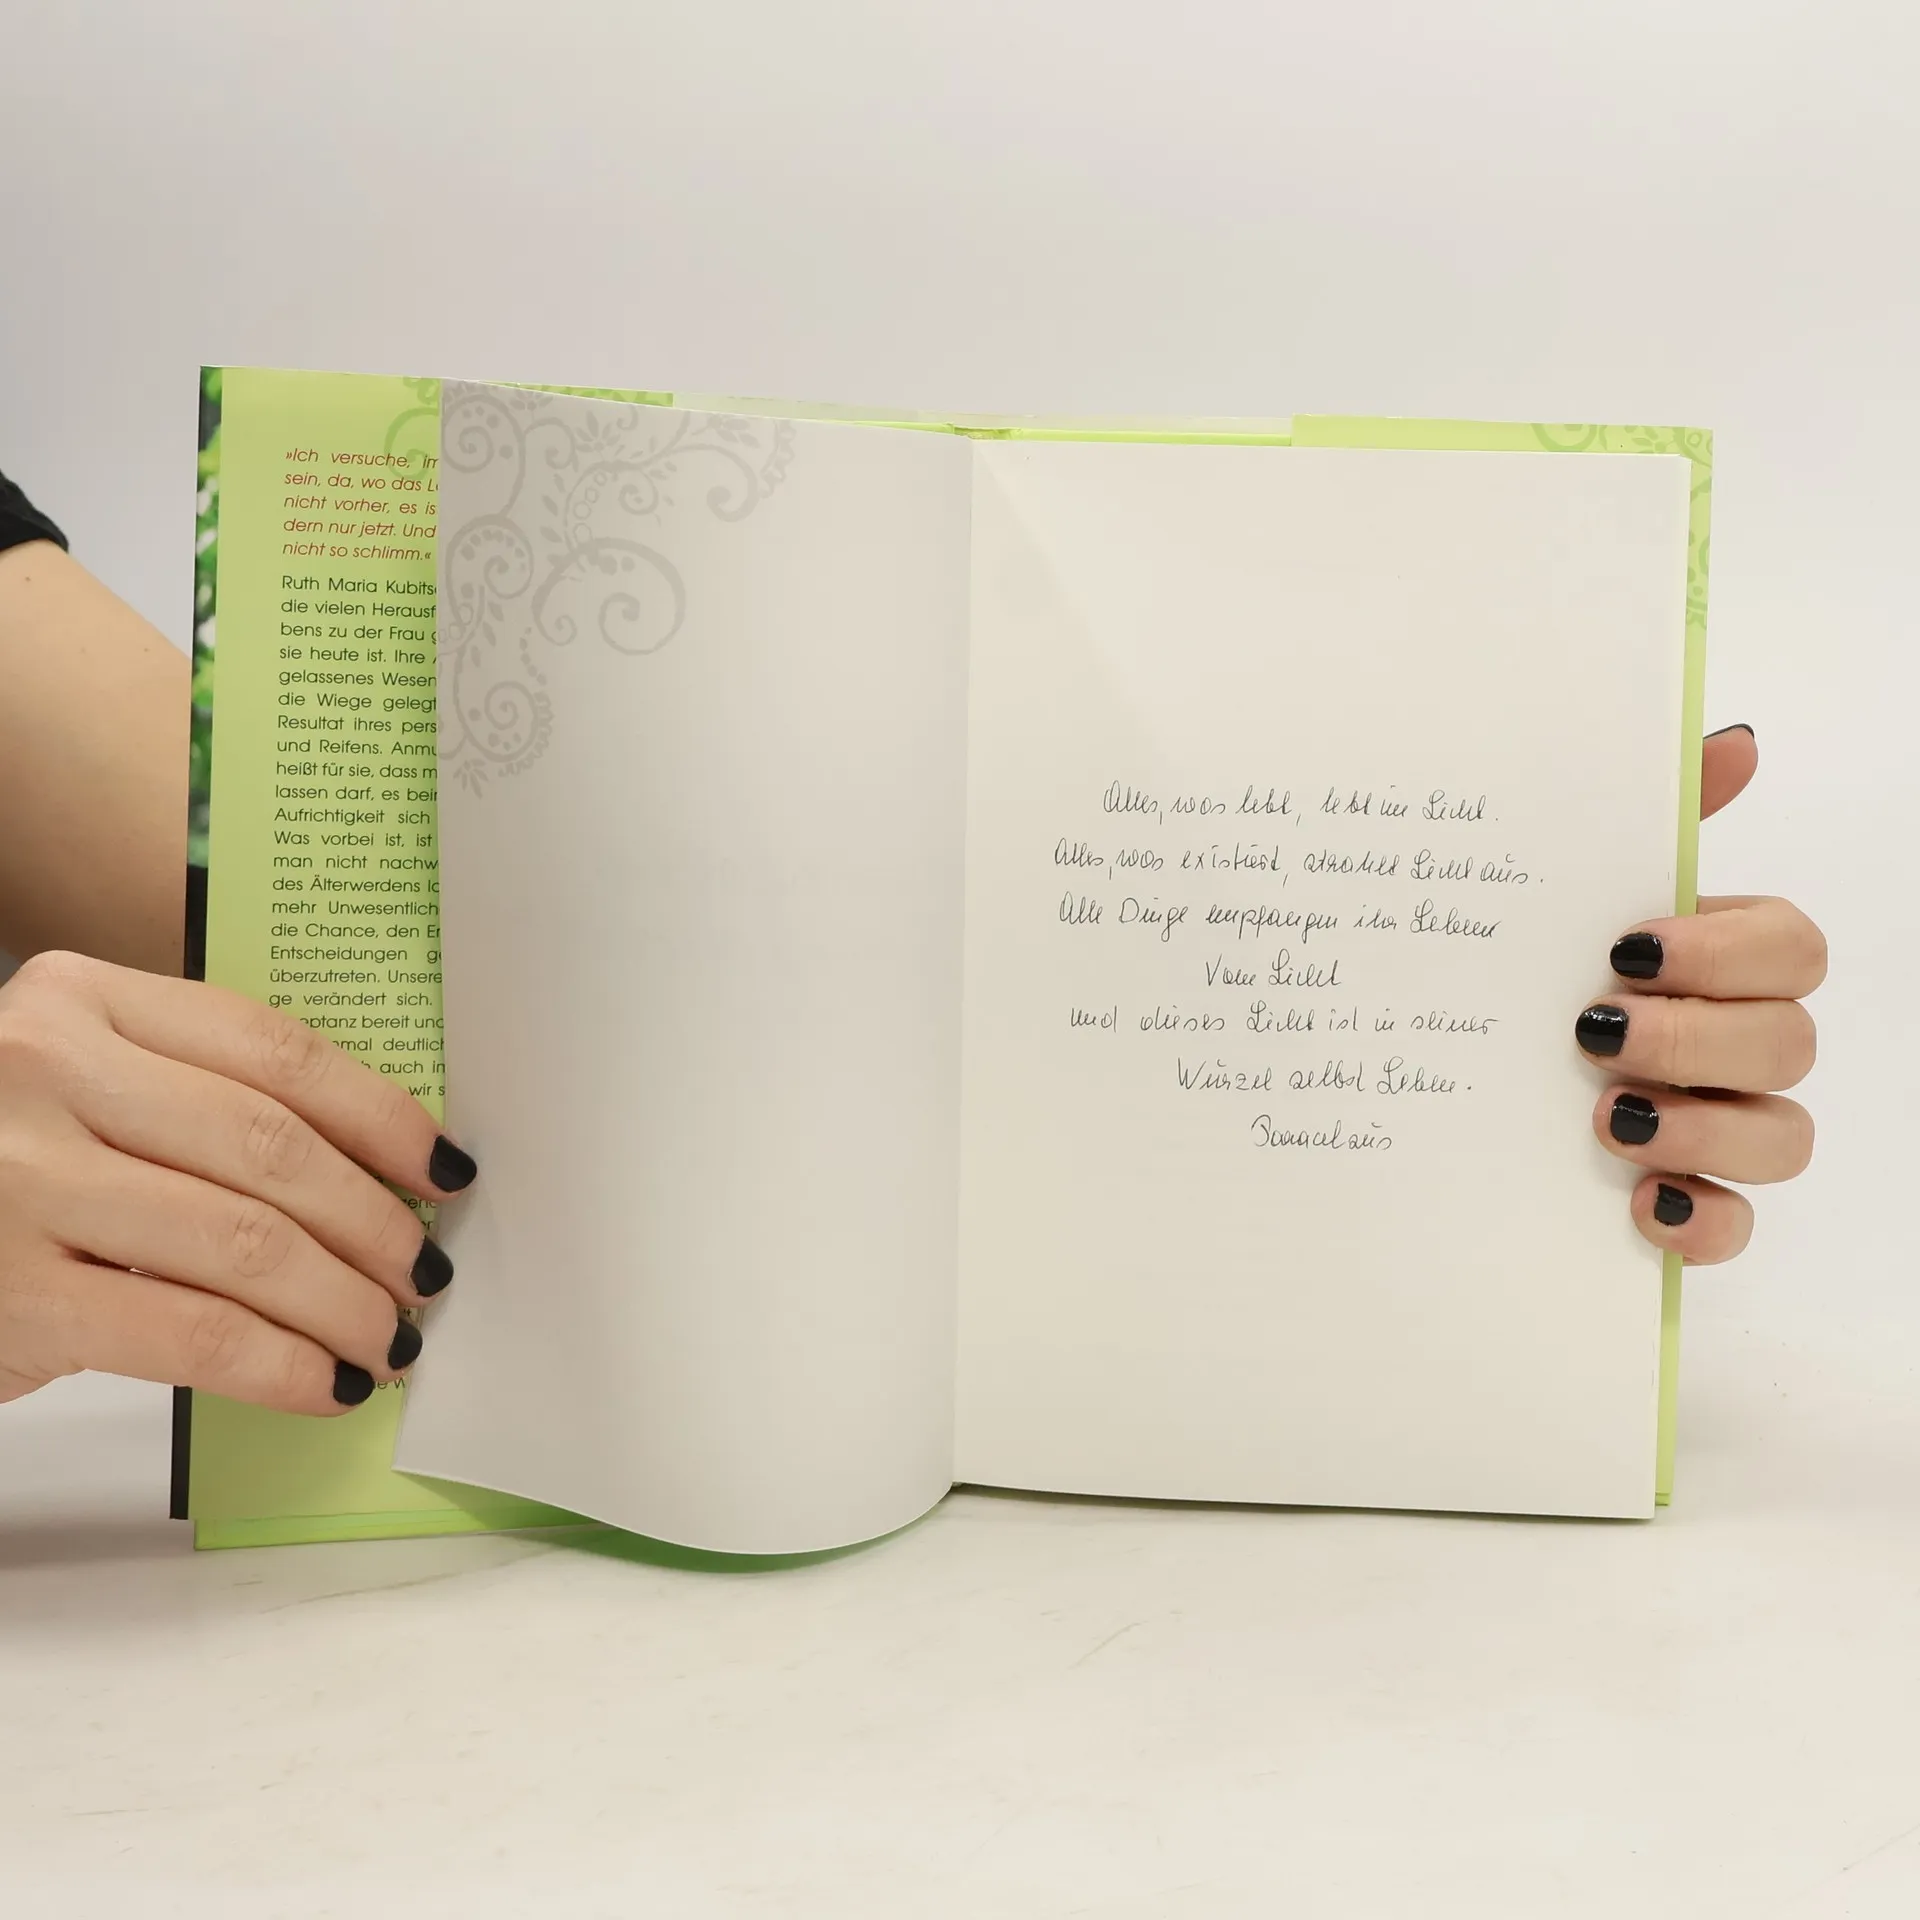 »Ich versuche, im
sein, da, wo das Le
nicht vorher, es is
dern nur jetzt. Und
nicht so schlimm.«
Ruth Maria Kubits
die vielen Herausf
bens zu der Frau g
sie heute ist. Ihre
gelassenes Wesen
die Wiege gelegt
Resultat ihres pers
und Reifens. Anmu
heißt für sie, dass m
lassen darf, es bei
Aufrichtigkeit sich
Was vorbei ist, ist
man nicht nachw
des Älterwerdens lo
mehr Unwesentlich
die Chance, den Er
Entscheidungen ge
überzutreten. Unsere
ge verändert sich.
eptanz bereit und
mal deutlich
auch in
wir s
Alles, was lebt, lebt im Licht.
Alles, was existiert, strahlt Licht aus.
Alle Dinge empfangen ihr Leben
Vom Licht
und dieses Licht ist in seiner
Wurzel selbst Leben.
Paracelsus